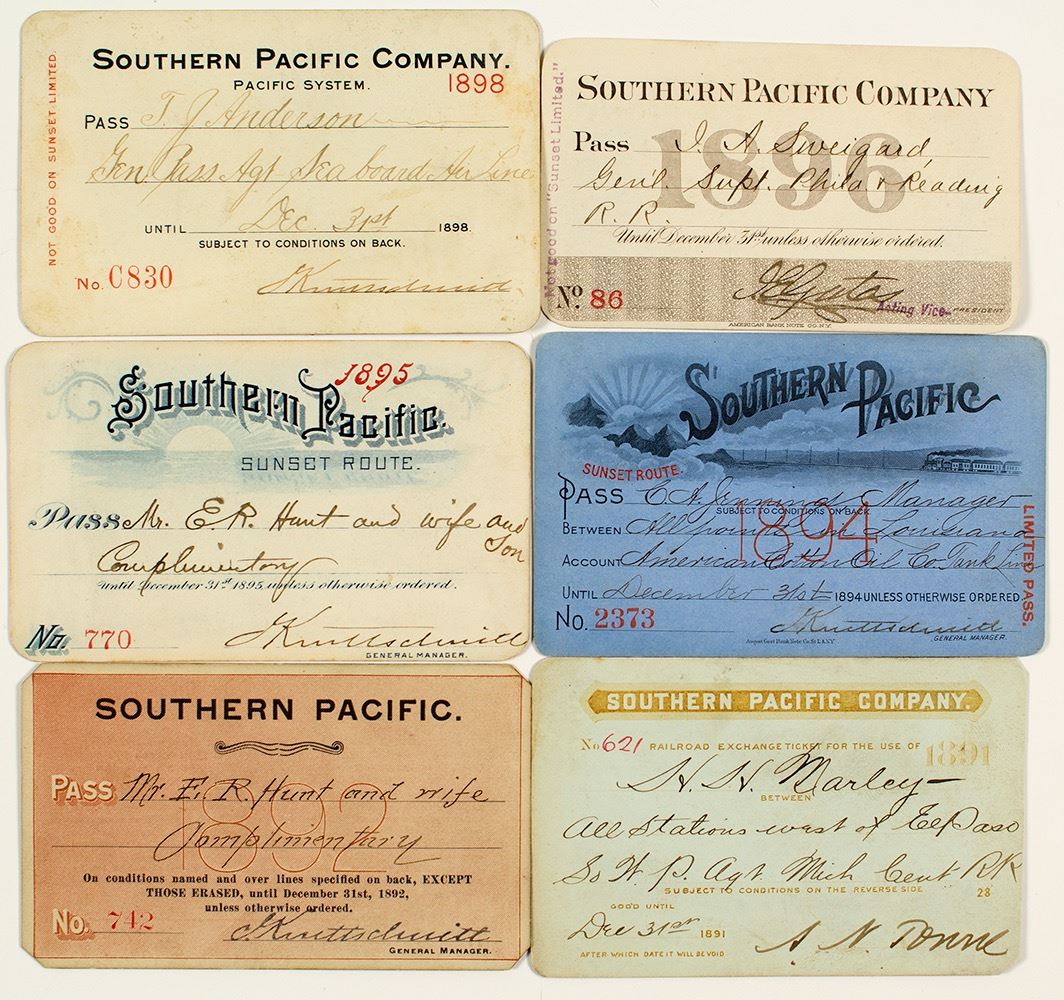 NOT GOOD ON SUNSET LIMITED.
SOUTHERN PACIFIC COMPANY.
PACIFIC SYSTEM.
1898
PASS T. J. Anderson
Gen Pass Agt Seaboard Air Line
UNTIL Dec. 31st 1898.
SUBJECT TO CONDITIONS ON BACK.
No. C830
J Kruttschnitt
Not good on "Sunset Limited."
SOUTHERN PACIFIC COMPANY
1896
Pass I. A. Sweigard,
Gen'l. Supt. Phila & Reading
R. R.
Until December 31st unless otherwise ordered.
No. 86
Acting Vice-PRESIDENT
AMERICAN BANK NOTE CO. N.Y.
1895
Southern Pacific.
SUNSET ROUTE.
Pass Mr. E. R. Hunt and wife and
Son
Complimentory
Until December 31st 1895, unless otherwise ordered.
No. 770
J Kruttschnitt
GENERAL MANAGER.
SOUTHERN PACIFIC
SUNSET ROUTE.
PASS C. A. Manager
SUBJECT TO CONDITIONS ON BACK
1894
BETWEEN All points in Louisiana
ACCOUNT American Cotton Oil Co Tank Line
UNTIL December 31st 1894 UNLESS OTHERWISE ORDERED
No. 2373
J Kruttschnitt
GENERAL MANAGER.
LIMITED PASS.
SOUTHERN PACIFIC.
PASS Mr. E. R. Hunt and wife
1892
Complimentary
On conditions named and over lines specified on back, EXCEPT
THOSE ERASED, until December 31st, 1892,
unless otherwise ordered.
No. 742
J Kruttschnitt
GENERAL MANAGER.
SOUTHERN PACIFIC COMPANY.
No 621 RAILROAD EXCHANGE TICKET FOR THE USE OF 1891
H. H. Marley
BETWEEN
All Stations west of El Paso
So W. P. Agt Mich Cent RR
SUBJECT TO CONDITIONS ON THE REVERSE SIDE
28
GOOD UNTIL
Dec 31st 1891
AFTER WHICH DATE IT WILL BE VOID
A. N. Towne